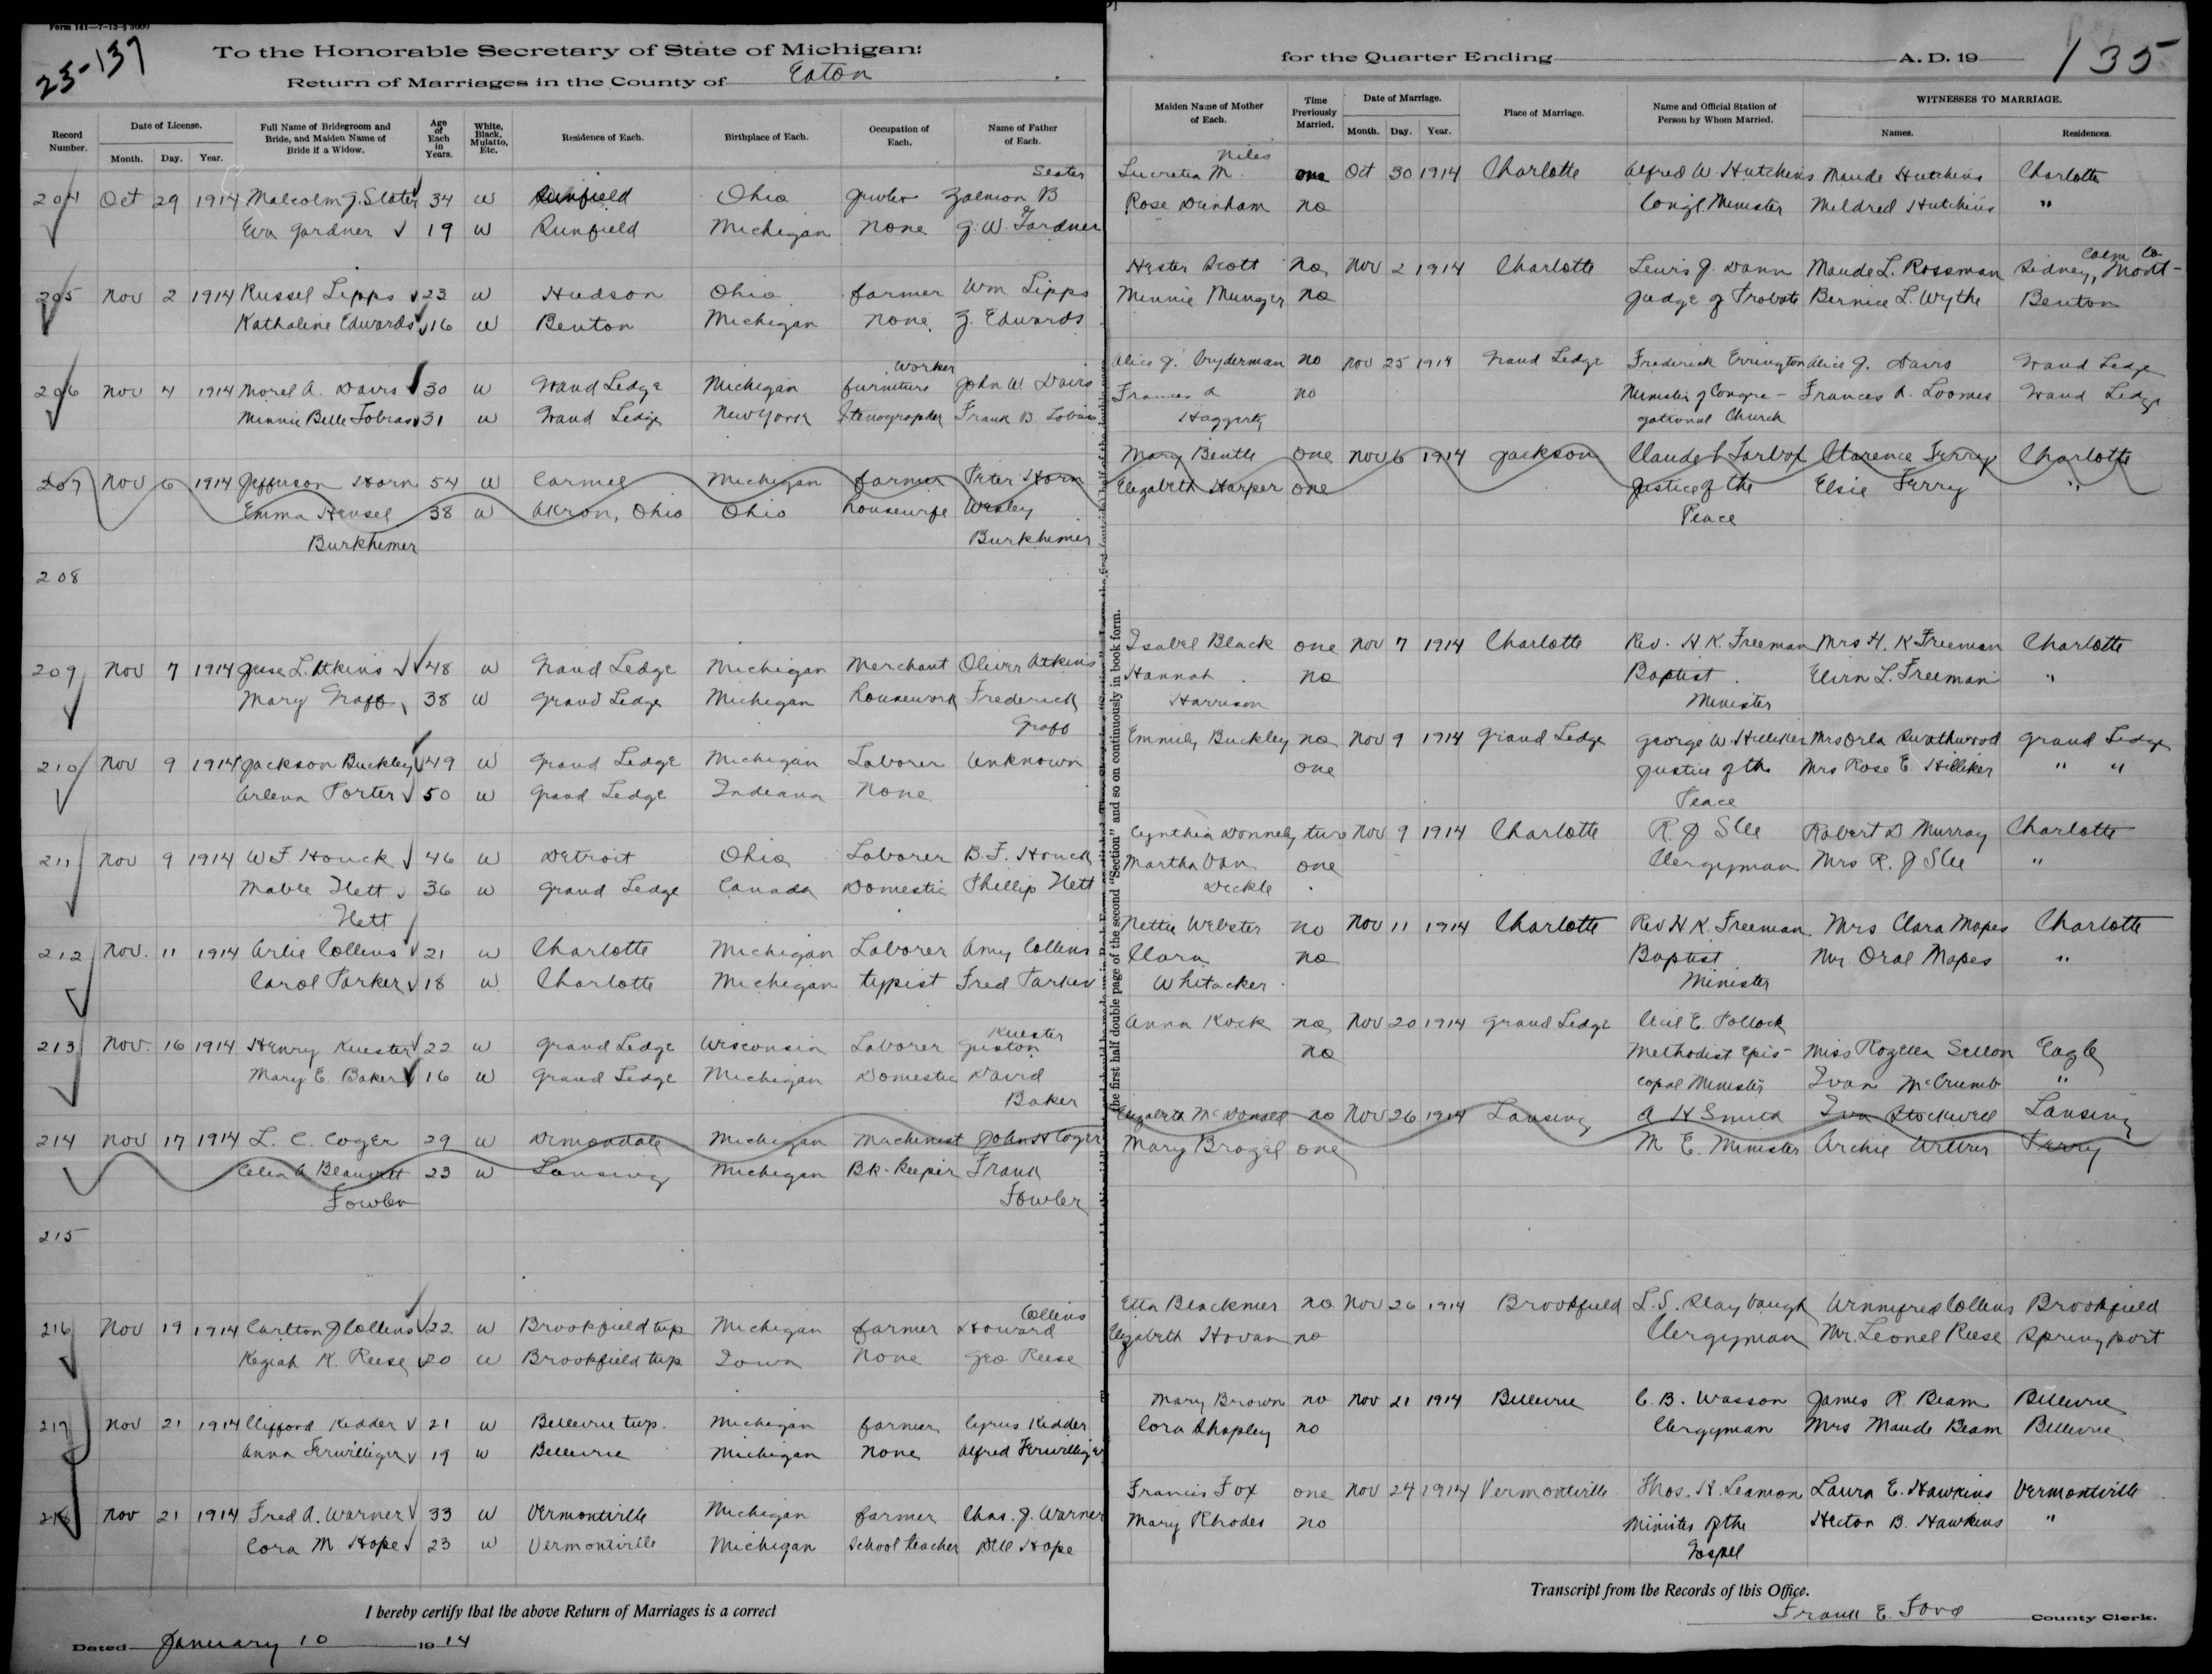 Form 141—7-13-
25-137
To the Honorable Secretary of State of Michigan:
Return of Marriages in the County of Eaton
for the Quarter Ending A. D. 19
135
Record Number. Date of License. Month. Day. Year. Full Name of Bridegroom and Bride, and Maiden Name of Bride if a Widow. Age of Each in Years. White, Black, Mulatto, Etc. Residence of Each. Birthplace of Each. Occupation of Each. Name of Father of Each.
Maiden Name of Mother of Each. Time Previously Married. Date of Marriage. Month. Day. Year. Place of Marriage. Name and Official Station of Person by Whom Married. WITNESSES TO MARRIAGE. Names. Residences.
Slater Niles
204 Oct 29 1914 Malcolm J. Slater 34 W Sunfield Ohio Zalmon B Lucretia M. one Oct 30 1914 Charlotte Alfred W. Hutchins Maude Hutchins Charlotte
Eva Gardner 19 W Sunfield Michigan None G. W. Gardner Rose Dunham no Congl. Minister Mildred Hutchins "
205 Nov 2 1914 Russel Lipps 23 W Hudson Ohio farmer Wm Lipps Hester Scott no Nov 2 1914 Charlotte Lewis J. Dann Maude L. Rossman Sidney, Mont-
Kathaline Edwards 16 W Benton Michigan None. J. Edwards Minnie Munger no Judge of Probate Bernice L. Wythe Benton
worker
206 Nov 4 1914 Morel A. Davis 30 W Grand Ledge Michigan furniture John W Davis Alice J. Cryderman no Nov 25 1914 Grand Ledge Frederick Errington Alice J. Davis Grand Ledge
Minnie Belle Tobias 31 W Grand Ledge New York Stenographer Frank B Tobias Frances A no Minister of Congre- Frances A. Loomis Grand Ledge
Haggerty gational Church
207 Nov 6 1914 Jefferson Horn 54 W Carmel Michigan farmer Peter Horn Mary Bentle one Nov 6 1914 Jackson Claude Tarbox Clarence Ferry Charlotte
Emma Hensel 38 W Akron, Ohio Ohio housewife Wesley Elizabeth Harper one Justice of the Elsie Ferry "
Burkhimer Burkhimer Peace
208
209 Nov 7 1914 Jesse L. Atkins 48 W Grand Ledge Michigan Merchant Oliver Atkins Isabel Black one Nov 7 1914 Charlotte Rev. H. K. Freeman Mrs H. K Freeman Charlotte
Mary Graff 38 W Grand Ledge Michigan housework Frederick Hannah no Baptist Elvin L. Freeman "
Graff Harrison Minister
210 Nov 9 1914 Jackson Buckley 49 W Grand Ledge Michigan Laborer Unknown Emmily Buckley no Nov 9 1914 Grand Ledge George W. Hilliker Mrs Orla Swathwood Grand Ledge
Arlena Porter 50 W Grand Ledge Indiana None one Justice of the Mrs Rose E. Hilliker " "
Peace
211 Nov 9 1914 W F. Houck 46 W Detroit Ohio Laborer B. F. Houck Cynthia Donnely two Nov 9 1914 Charlotte R. J Slee Robert D Murray Charlotte
Mable Hett 36 W Grand Ledge Canada Domestic Phillip Hett Martha Van one Clergyman Mrs R. J Slee "
Hett Deckle
212 Nov. 11 1914 Arlie Collins 21 W Charlotte Michigan Laborer Amy Collins Nettie Webster no Nov 11 1914 Charlotte Rev H K. Freeman Mrs Clara Mapes Charlotte
Carol Parker 18 W Charlotte Michigan typist Fred Parker Clara no Baptist Mr Oral Mapes "
Whitacker Minister
Kuester
213 Nov. 16 1914 Henry Kuester 22 W Grand Ledge Wisconsin Laborer Anna Kock no Nov 20 1914 Grand Ledge Cecil E. Pollock
Mary E. Baker 16 W Grand Ledge Michigan Domestic David no Methodist Epis- Miss Rozella Sellon Eagle
Baker copal Minister Ivan McCrumb "
214 Nov 17 1914 L. C. Coger 29 W Dimondale Michigan Machinist John H Coger Elizabeth McDonald no Nov 26 1914 Lansing A H Smith Iva Stockwell Lansing
Celia A Blauvelt 23 W Lansing Michigan Bk-Keeper Frank Mary Brazil one M E. Minister Archie Perry
Fowler Fowler
215
Collins
216 Nov 19 1914 Carlton J Collins 22 W Brookfield twp Michigan farmer Howard Etta Blackmer no Nov 26 1914 Brookfield L. S. Slaybaugh Winnifred Collins Brookfield
Keziah K. Reese 20 W Brookfield twp Iowa None Geo Reese Elizabeth Hovan no Clergyman Mr. Leonel Reese Springport
217 Nov 21 1914 Clifford Kidder 21 W Bellevue twp. Michigan farmer Cyrus Kidder Mary Brown no Nov 21 1914 Bellevue C. B. Wasson James R. Beam Bellevue
Anna Terwilliger 19 W Bellevue Michigan None Alfred Terwilliger Cora Shapley no Clergyman Mrs Maude Beam Bellevue
218 Nov 21 1914 Fred A. Warner 33 W Vermontville Michigan farmer Chas. J. Warner Francis Fox one Nov 24 1914 Vermontville Thos. H. Leamon Laura E. Hawkins Vermontville
Cora M. Hope 23 W Vermontville Michigan School teacher Dell Hope Mary Rhodes no Minister of the Hector B. Hawkins "
Gospel
the first half double page of the second "Section" and so on continuously in book form.
I hereby certify that the above Return of Marriages is a correct Transcript from the Records of this Office.
Dated January 10 19 14
Frank E. Ford County Clerk.